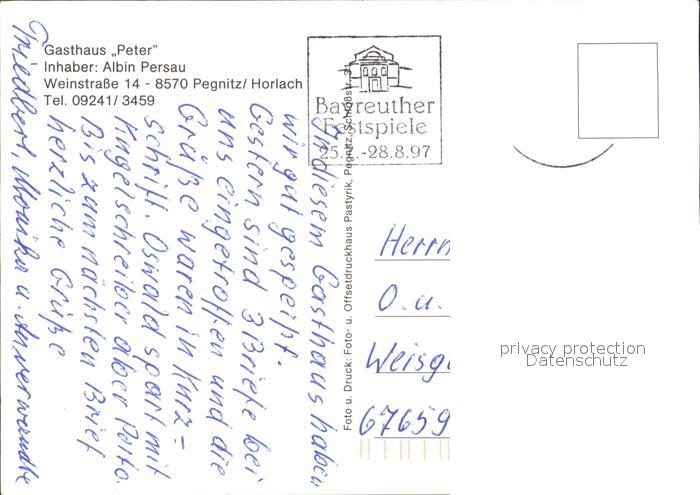 Gasthaus „Peter"
Inhaber: Albin Persau
Weinstraße 14 - 8570 Pegnitz/ Horlach
Tel. 09241/ 3459
Bayreuther
Festspiele
25.7.-28.8.97
In diesem Gasthaus haben
wir gut gespeist.
Gestern sind 3 Briefe bei
uns eingetroffen und die
Grüße waren in Kurz=
schrift. Oswald spart mit
Kugelschreiber aber Porto.
Bis zum nächsten Brief
herzliche Grüße
Friedbert, Monika u. Anverwandte
Foto u. Druck: Foto- u. Offsetdruckhaus Pastyrik, Pegnitz, Schloßstr.
Herrn
O. u.
Weisg
67659
privacy protection
Datenschutz